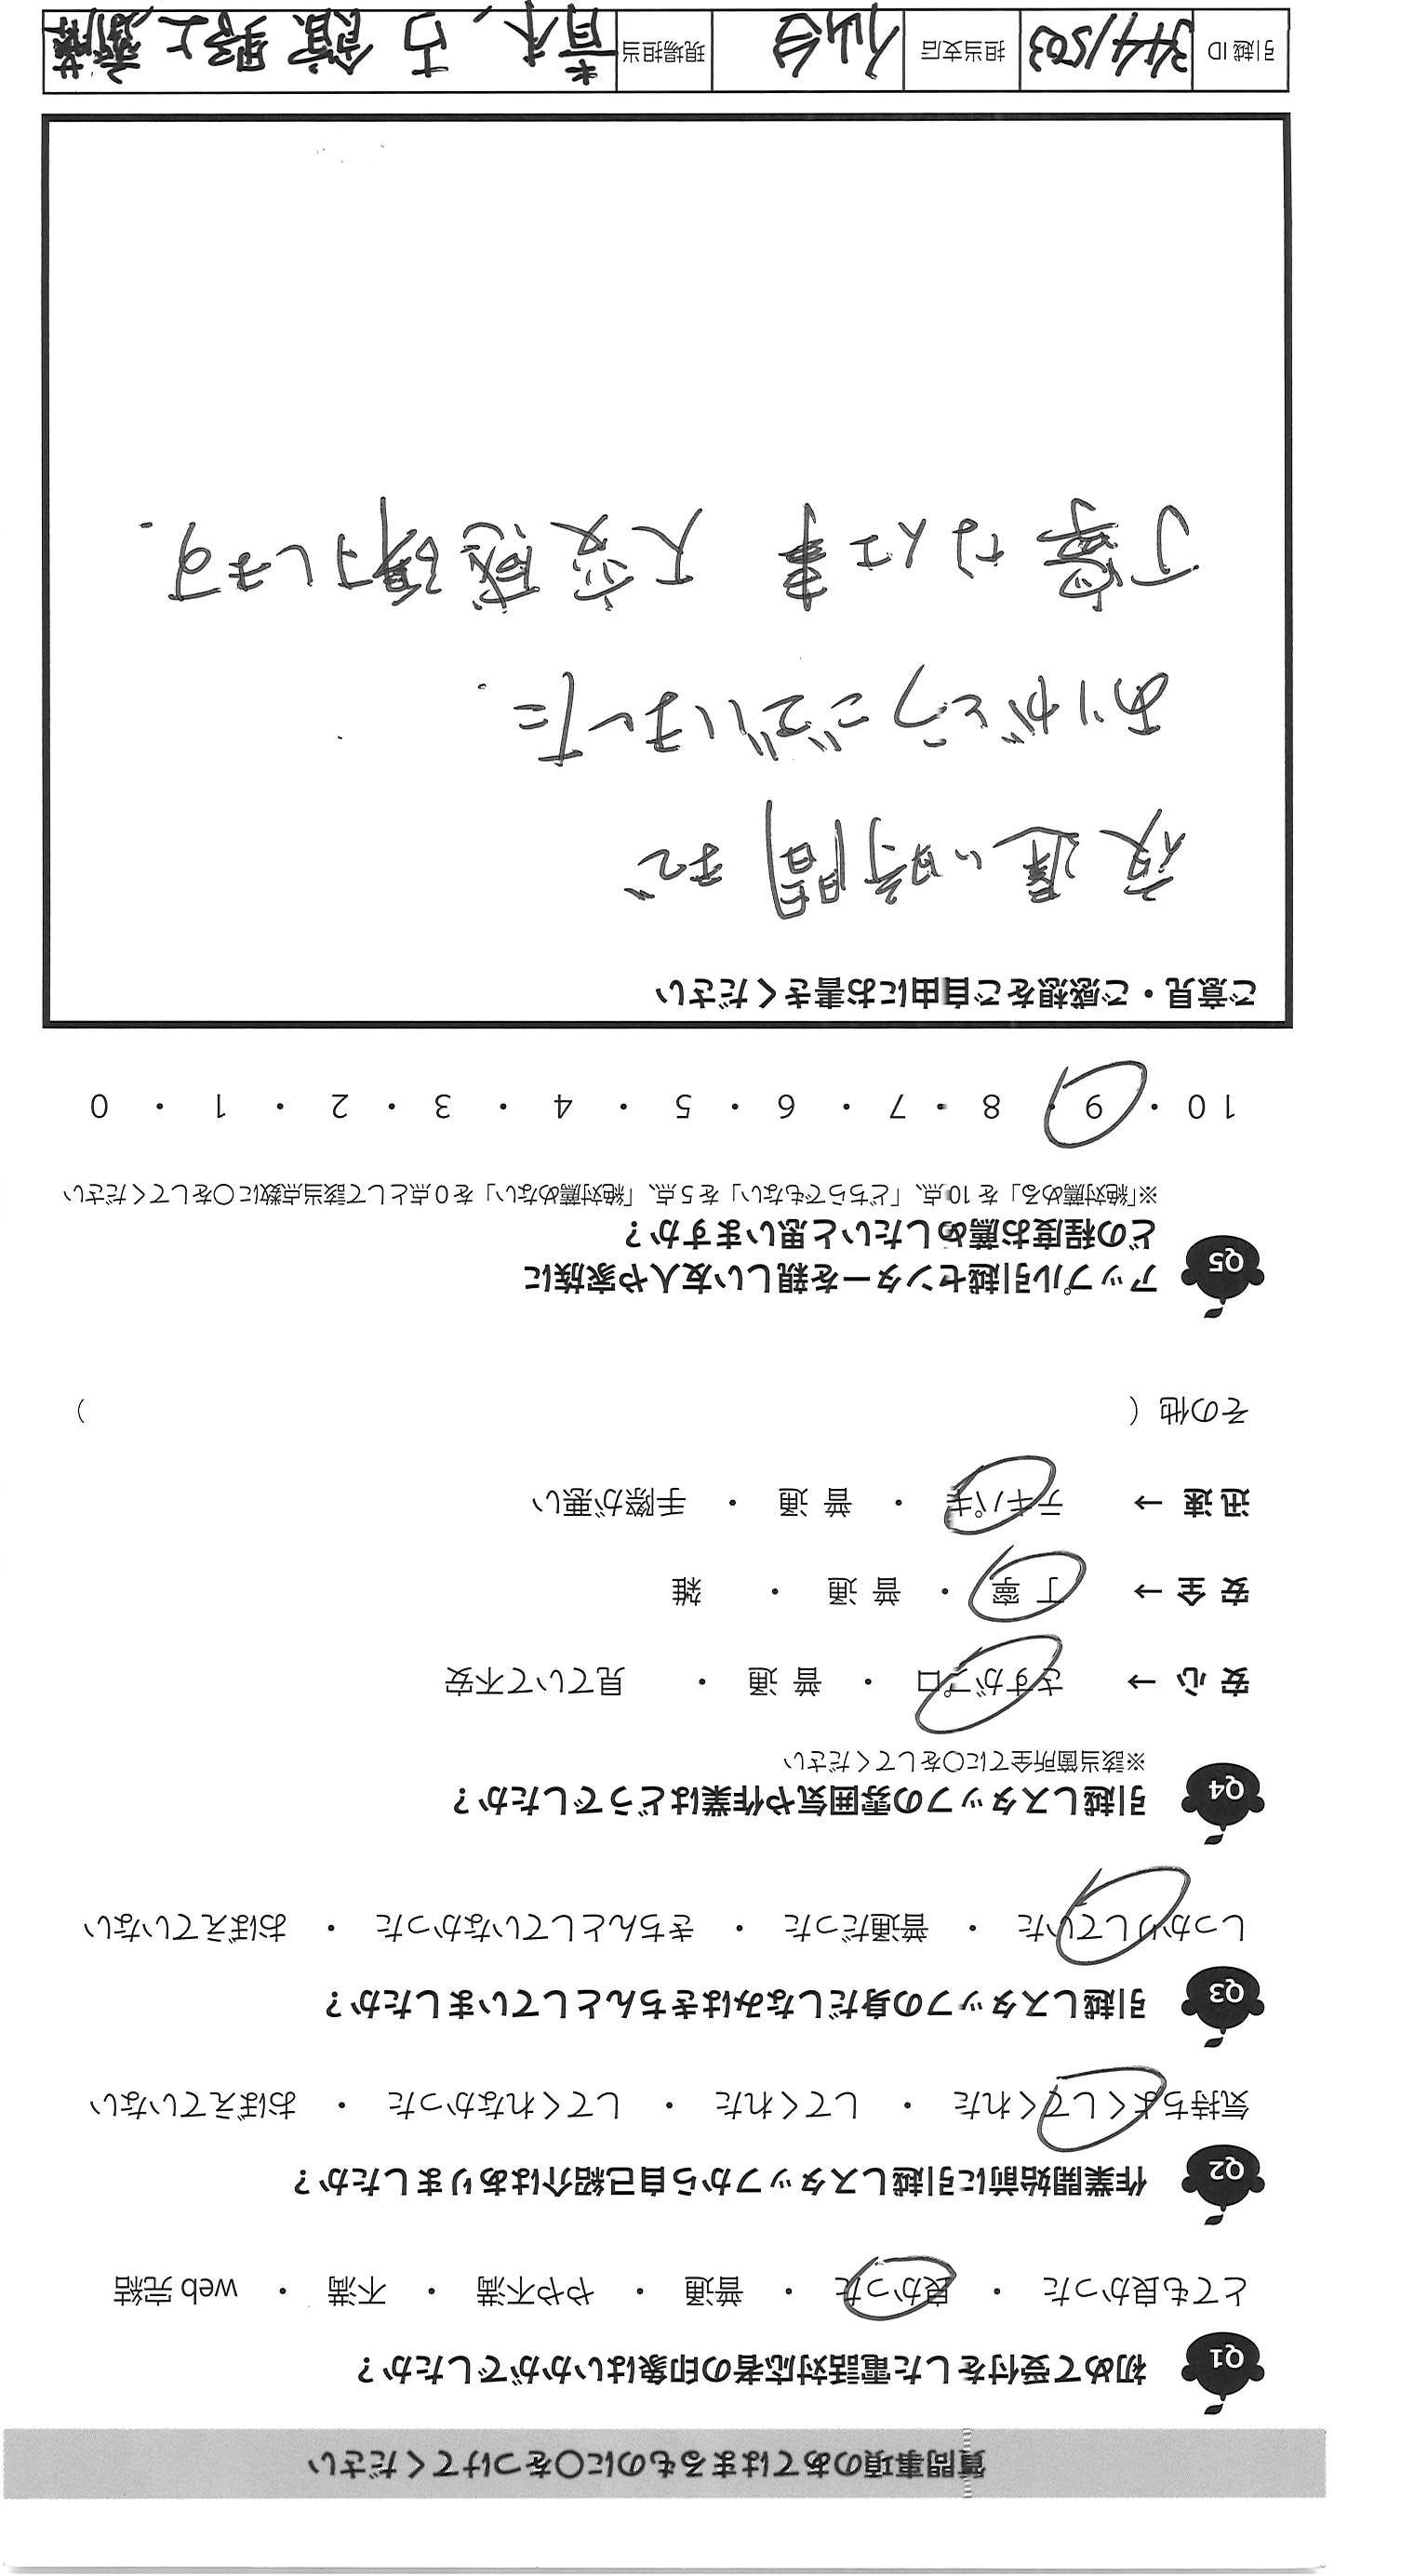 質問事項のあてはまるものに○をつけてください
Q1 初めて受付をした電話対応者の印象はいかがでしたか？
とても良かった ・ 良かった ・ 普通 ・ やや不満 ・ 不満 ・ web 完結
Q2 作業開始前に引越しスタッフから自己紹介はありましたか？
気持ちよくしてくれた ・ してくれた ・ してくれなかった ・ おぼえていない
Q3 引越しスタッフの身だしなみはきちんとしていましたか？
しっかりしていた ・ 普通だった ・ きちんとしていなかった ・ おぼえていない
Q4 引越しスタッフの雰囲気や作業はどうでしたか？
※該当箇所全てに○をしてください
安 心 → さすがプロ ・ 普 通 ・ 見ていて不安
安 全 → 丁 寧 ・ 普 通 ・ 雑
迅 速 → テキパキ ・ 普 通 ・ 手際が悪い
その他（ ）
Q5 アップル引越センターを親しい友人や家族に
どの程度お薦めしたいと思いますか？
※「絶対薦める」を 10点、「どちらでもない」を５点、「絶対薦めない」を０点として該当点数に○をしてください
10 ・ 9 ・ 8 ・ 7 ・ 6 ・ 5 ・ 4 ・ 3 ・ 2 ・ 1 ・ 0
ご意見・ご感想をご自由にお書きください
夜遅い時間まで
ありがとうございました.
丁寧な仕事 大変感謝します.
引越 ID 3441503 担当支店 仙台 現場担当 青木、古舘、野上、斎藤